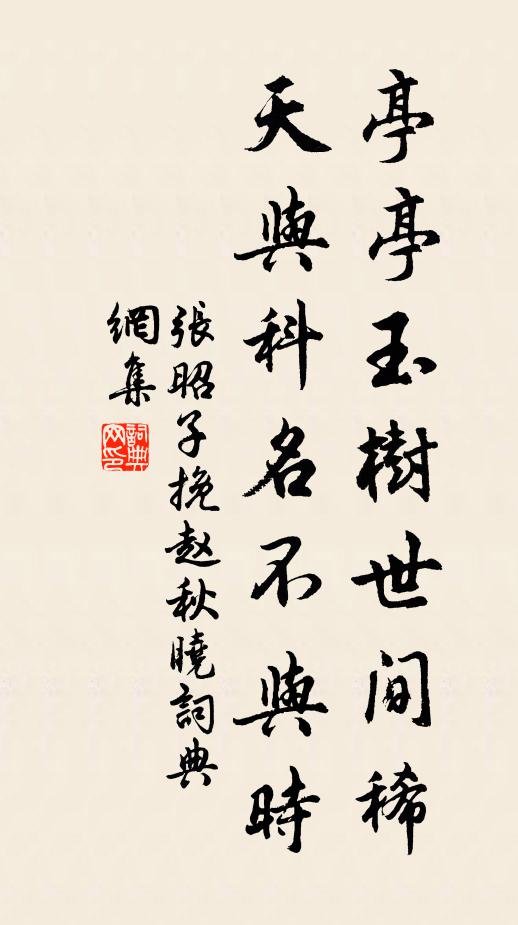 亭亭玉樹世間稀
天與科名不與時
張昭子挽赵秋曉詞典
網集
詞典
网印